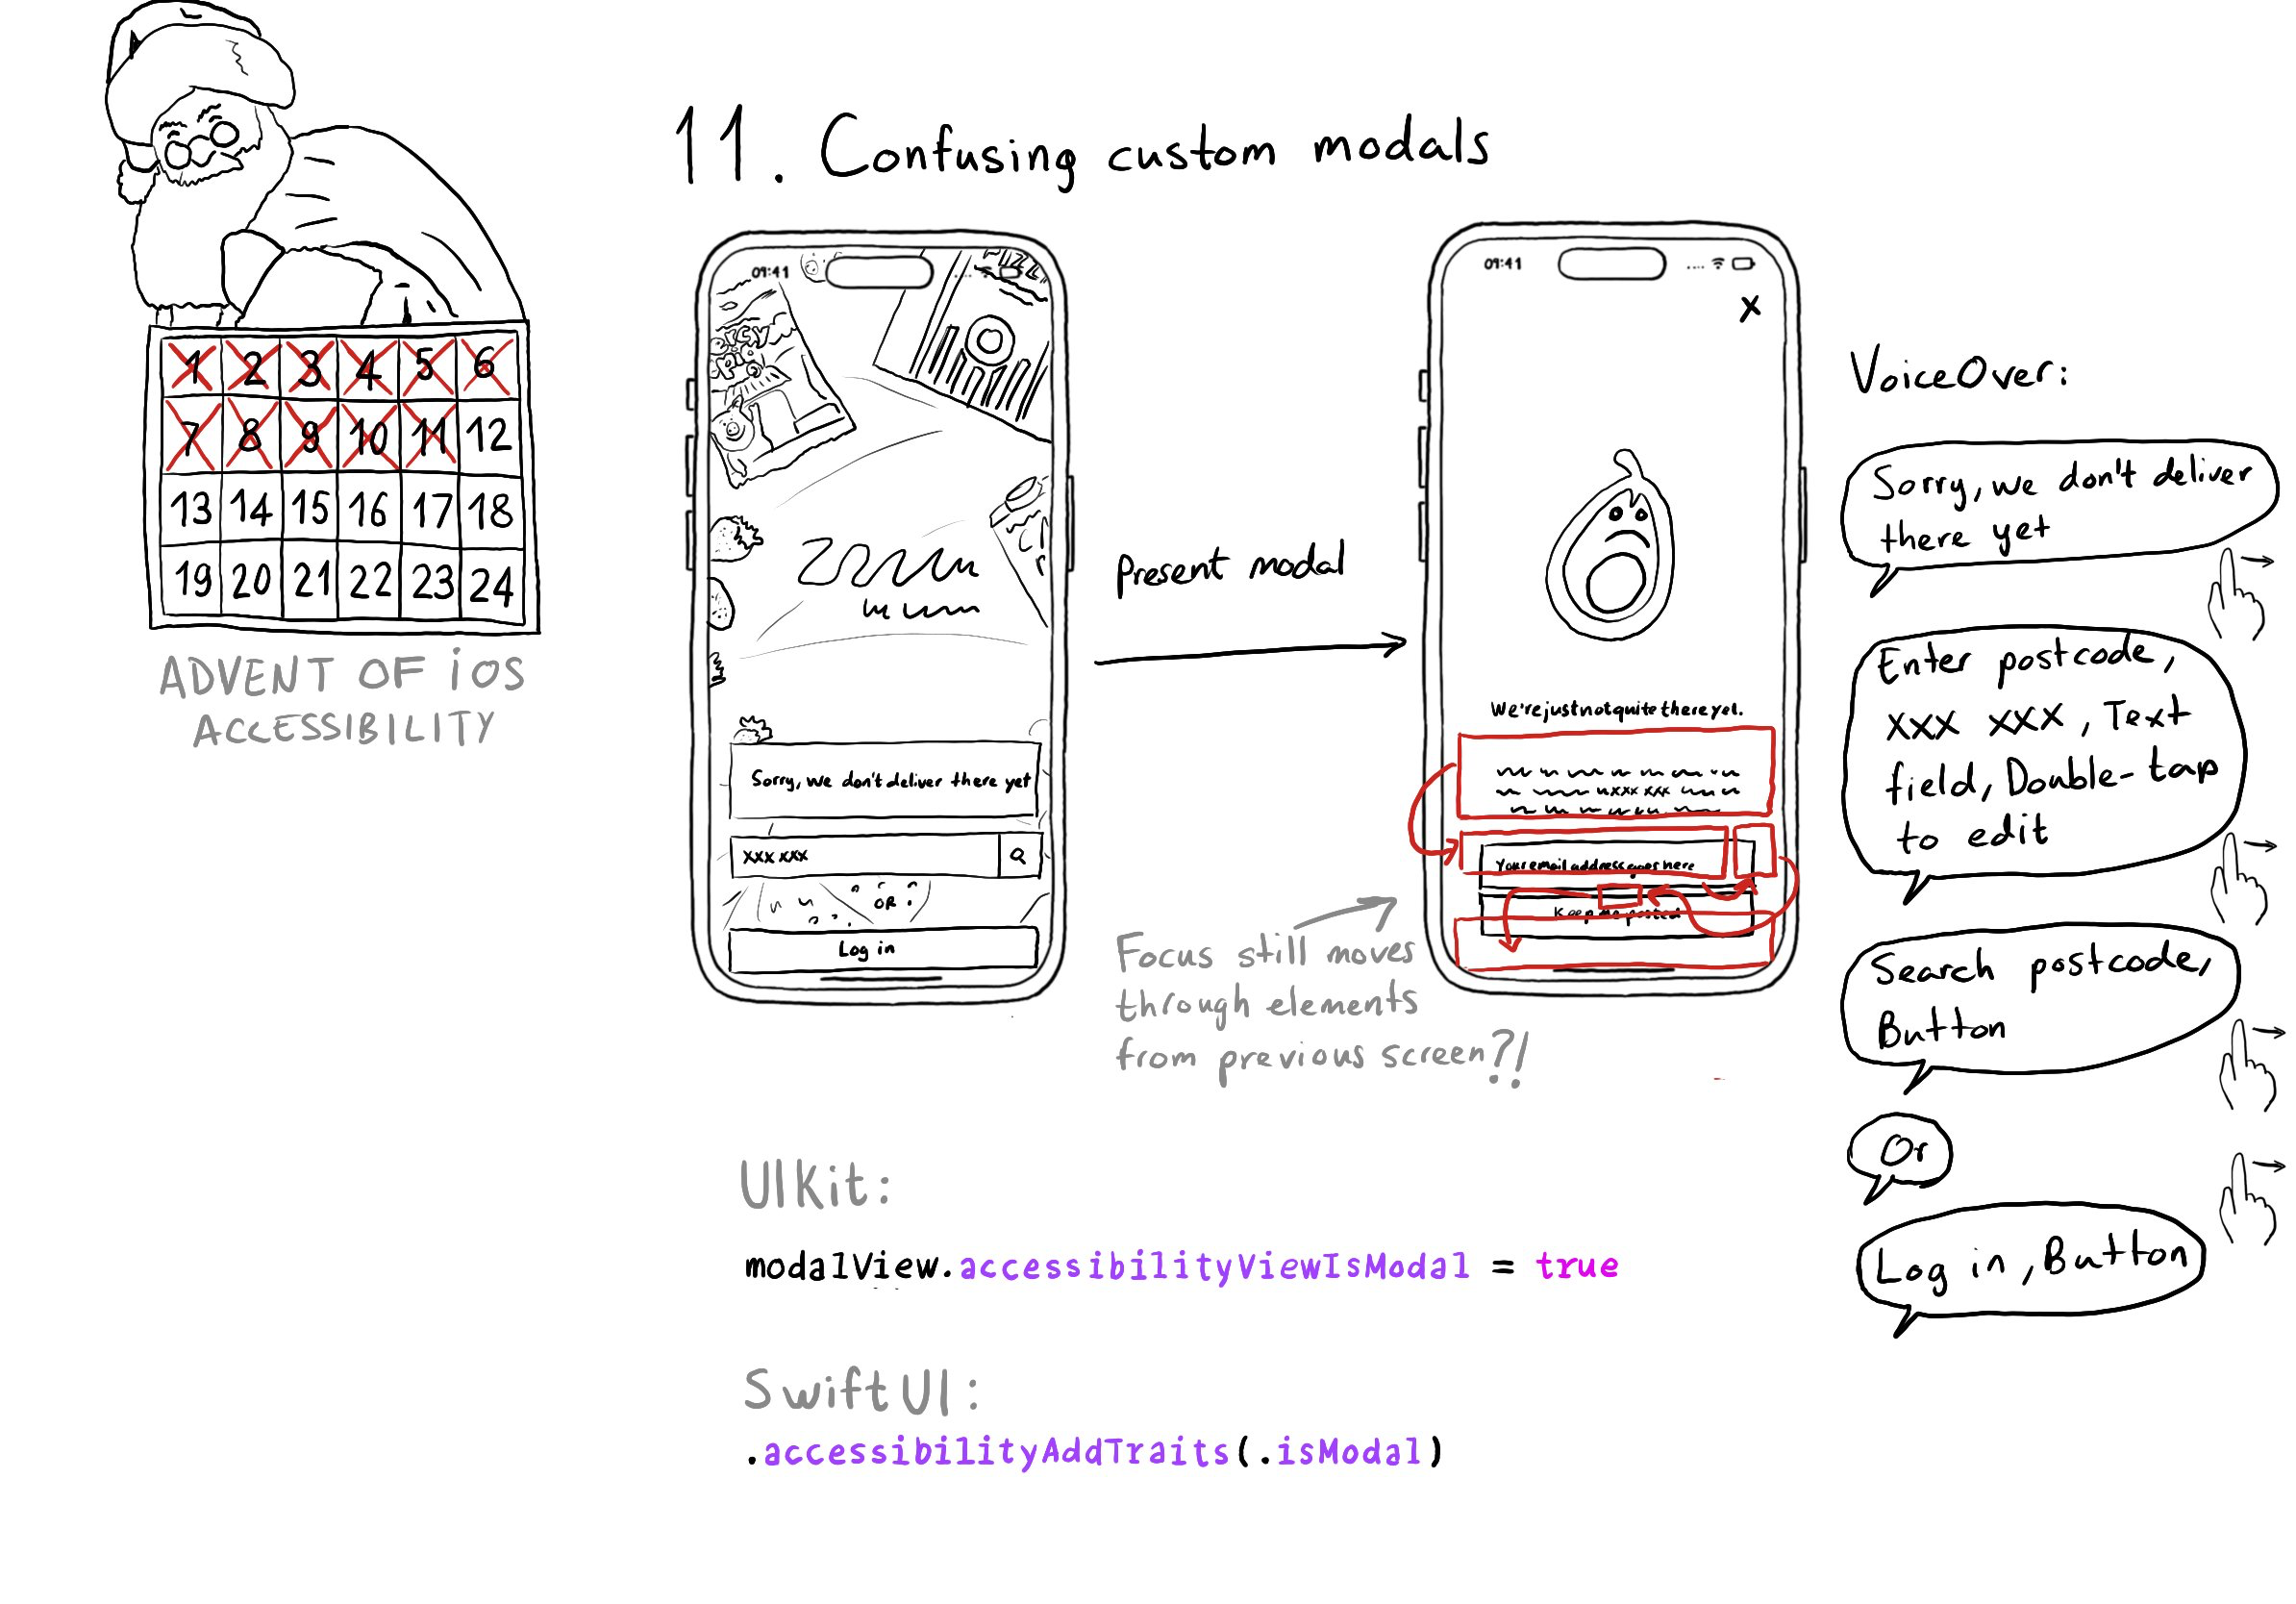 11. Confusing custom modals
1 2 3 4 5 6
7 8 9 10 11 12
13 14 15 16 17 18
19 20 21 22 23 24
ADVENT OF iOS
ACCESSIBILITY
09:41
Sorry, we don't deliver there yet
xxx xxx
OR
Log in
Present modal
09:41
X
We're just not quite there yet.
xxx xxx
Your email address goes here
Keep me posted
Focus still moves
through elements
from previous screen?!
VoiceOver:
Sorry, we don't deliver
there yet
Enter postcode,
xxx xxx, Text
field, Double-tap
to edit
Search postcode,
Button
Or
Log in, Button
UIKit:
modalView.accessibilityViewIsModal = true
SwiftUI:
.accessibilityAddTraits(.isModal)